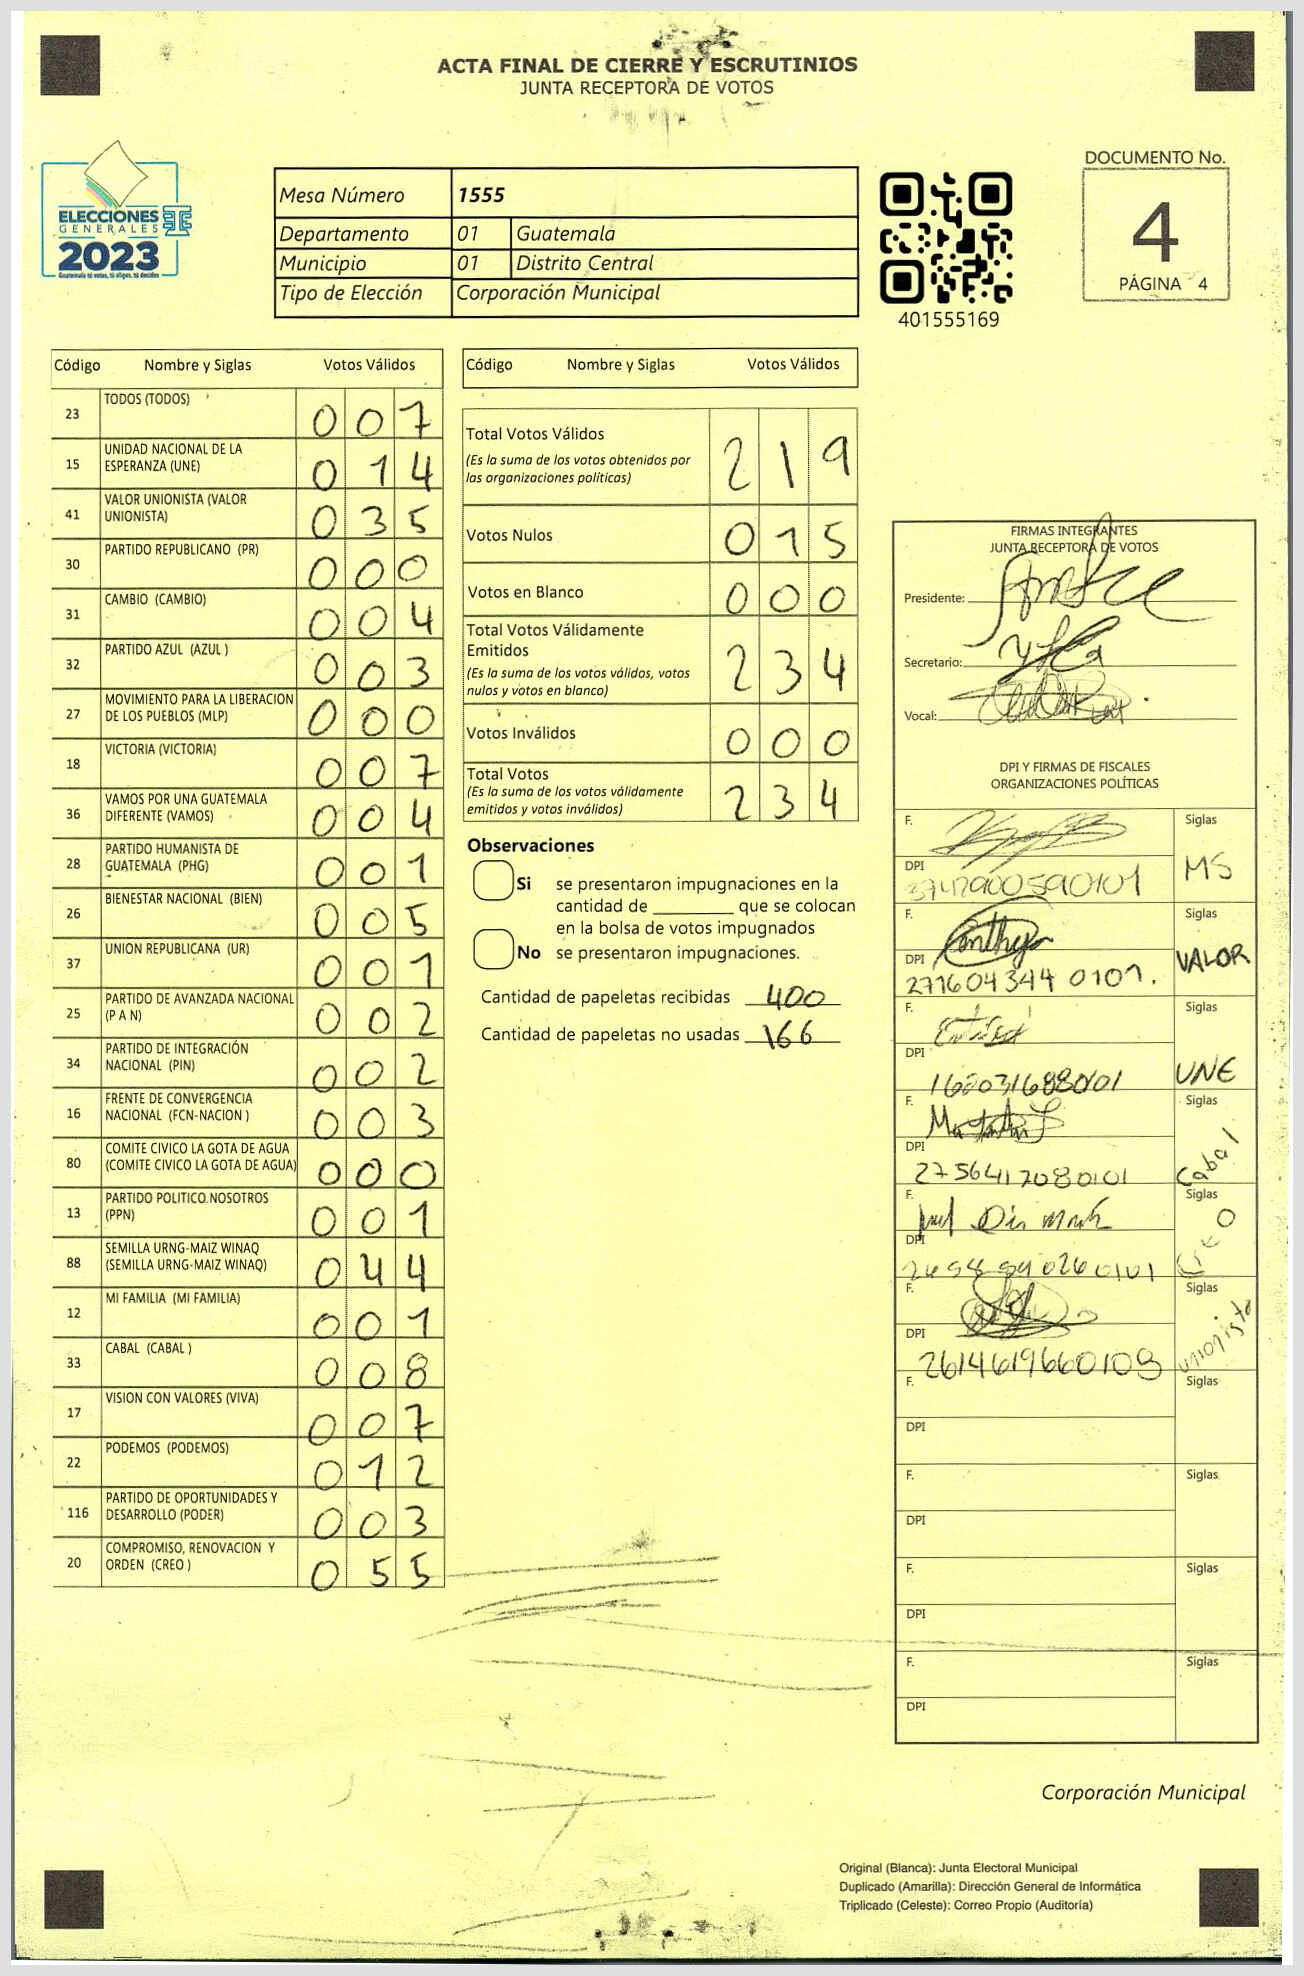 ACTA FINAL DE CIERRE Y ESCRUTINIOS
JUNTA RECEPTORA DE VOTOS
ELECCIONES
GENERALES
2023
Guatemala tú votas, tú eliges, tú decides
Mesa Número 1555
Departamento 01 Guatemala
Municipio 01 Distrito Central
Tipo de Elección Corporación Municipal
401555169
DOCUMENTO No.
4
PÁGINA 4
Código Nombre y Siglas Votos Válidos
23 TODOS (TODOS) 007
15 UNIDAD NACIONAL DE LA ESPERANZA (UNE) 014
41 VALOR UNIONISTA (VALOR UNIONISTA) 035
30 PARTIDO REPUBLICANO (PR) 000
31 CAMBIO (CAMBIO) 004
32 PARTIDO AZUL (AZUL ) 003
27 MOVIMIENTO PARA LA LIBERACION DE LOS PUEBLOS (MLP) 000
18 VICTORIA (VICTORIA) 007
36 VAMOS POR UNA GUATEMALA DIFERENTE (VAMOS) 004
28 PARTIDO HUMANISTA DE GUATEMALA (PHG) 001
26 BIENESTAR NACIONAL (BIEN) 005
37 UNION REPUBLICANA (UR) 001
25 PARTIDO DE AVANZADA NACIONAL (P A N) 002
34 PARTIDO DE INTEGRACIÓN NACIONAL (PIN) 002
16 FRENTE DE CONVERGENCIA NACIONAL (FCN-NACION ) 003
80 COMITE CIVICO LA GOTA DE AGUA (COMITE CIVICO LA GOTA DE AGUA) 000
13 PARTIDO POLITICO NOSOTROS (PPN) 001
88 SEMILLA URNG-MAIZ WINAQ (SEMILLA URNG-MAIZ WINAQ) 044
12 MI FAMILIA (MI FAMILIA) 001
33 CABAL (CABAL ) 008
17 VISION CON VALORES (VIVA) 007
22 PODEMOS (PODEMOS) 012
116 PARTIDO DE OPORTUNIDADES Y DESARROLLO (PODER) 003
20 COMPROMISO, RENOVACION Y ORDEN (CREO ) 055
Código Nombre y Siglas Votos Válidos
Total Votos Válidos 219
(Es la suma de los votos obtenidos por
las organizaciones políticas)
Votos Nulos 015
Votos en Blanco 000
Total Votos Válidamente
Emitidos 234
(Es la suma de los votos válidos, votos
nulos y votos en blanco)
Votos Inválidos 000
Total Votos 234
(Es la suma de los votos válidamente
emitidos y votos inválidos)
Observaciones
Si se presentaron impugnaciones en la
cantidad de ________ que se colocan
en la bolsa de votos impugnados
No se presentaron impugnaciones.
Cantidad de papeletas recibidas 400
Cantidad de papeletas no usadas 166
FIRMAS INTEGRANTES
JUNTA RECEPTORA DE VOTOS
Presidente:
Secretario:
Vocal:
DPI Y FIRMAS DE FISCALES
ORGANIZACIONES POLÍTICAS
F. Siglas
DPI MS
F. Siglas
DPI VALOR
271604344 0101.
F. Siglas
DPI UNE
F. Siglas
DPI Cabal
F. Siglas
DPI CREO
F. Siglas
DPI unionista
2614619660108
F. Siglas
DPI
F. Siglas
DPI
F. Siglas
DPI
F. Siglas
DPI
Corporación Municipal
Original (Blanca): Junta Electoral Municipal
Duplicado (Amarilla): Dirección General de Informática
Triplicado (Celeste): Correo Propio (Auditoría)